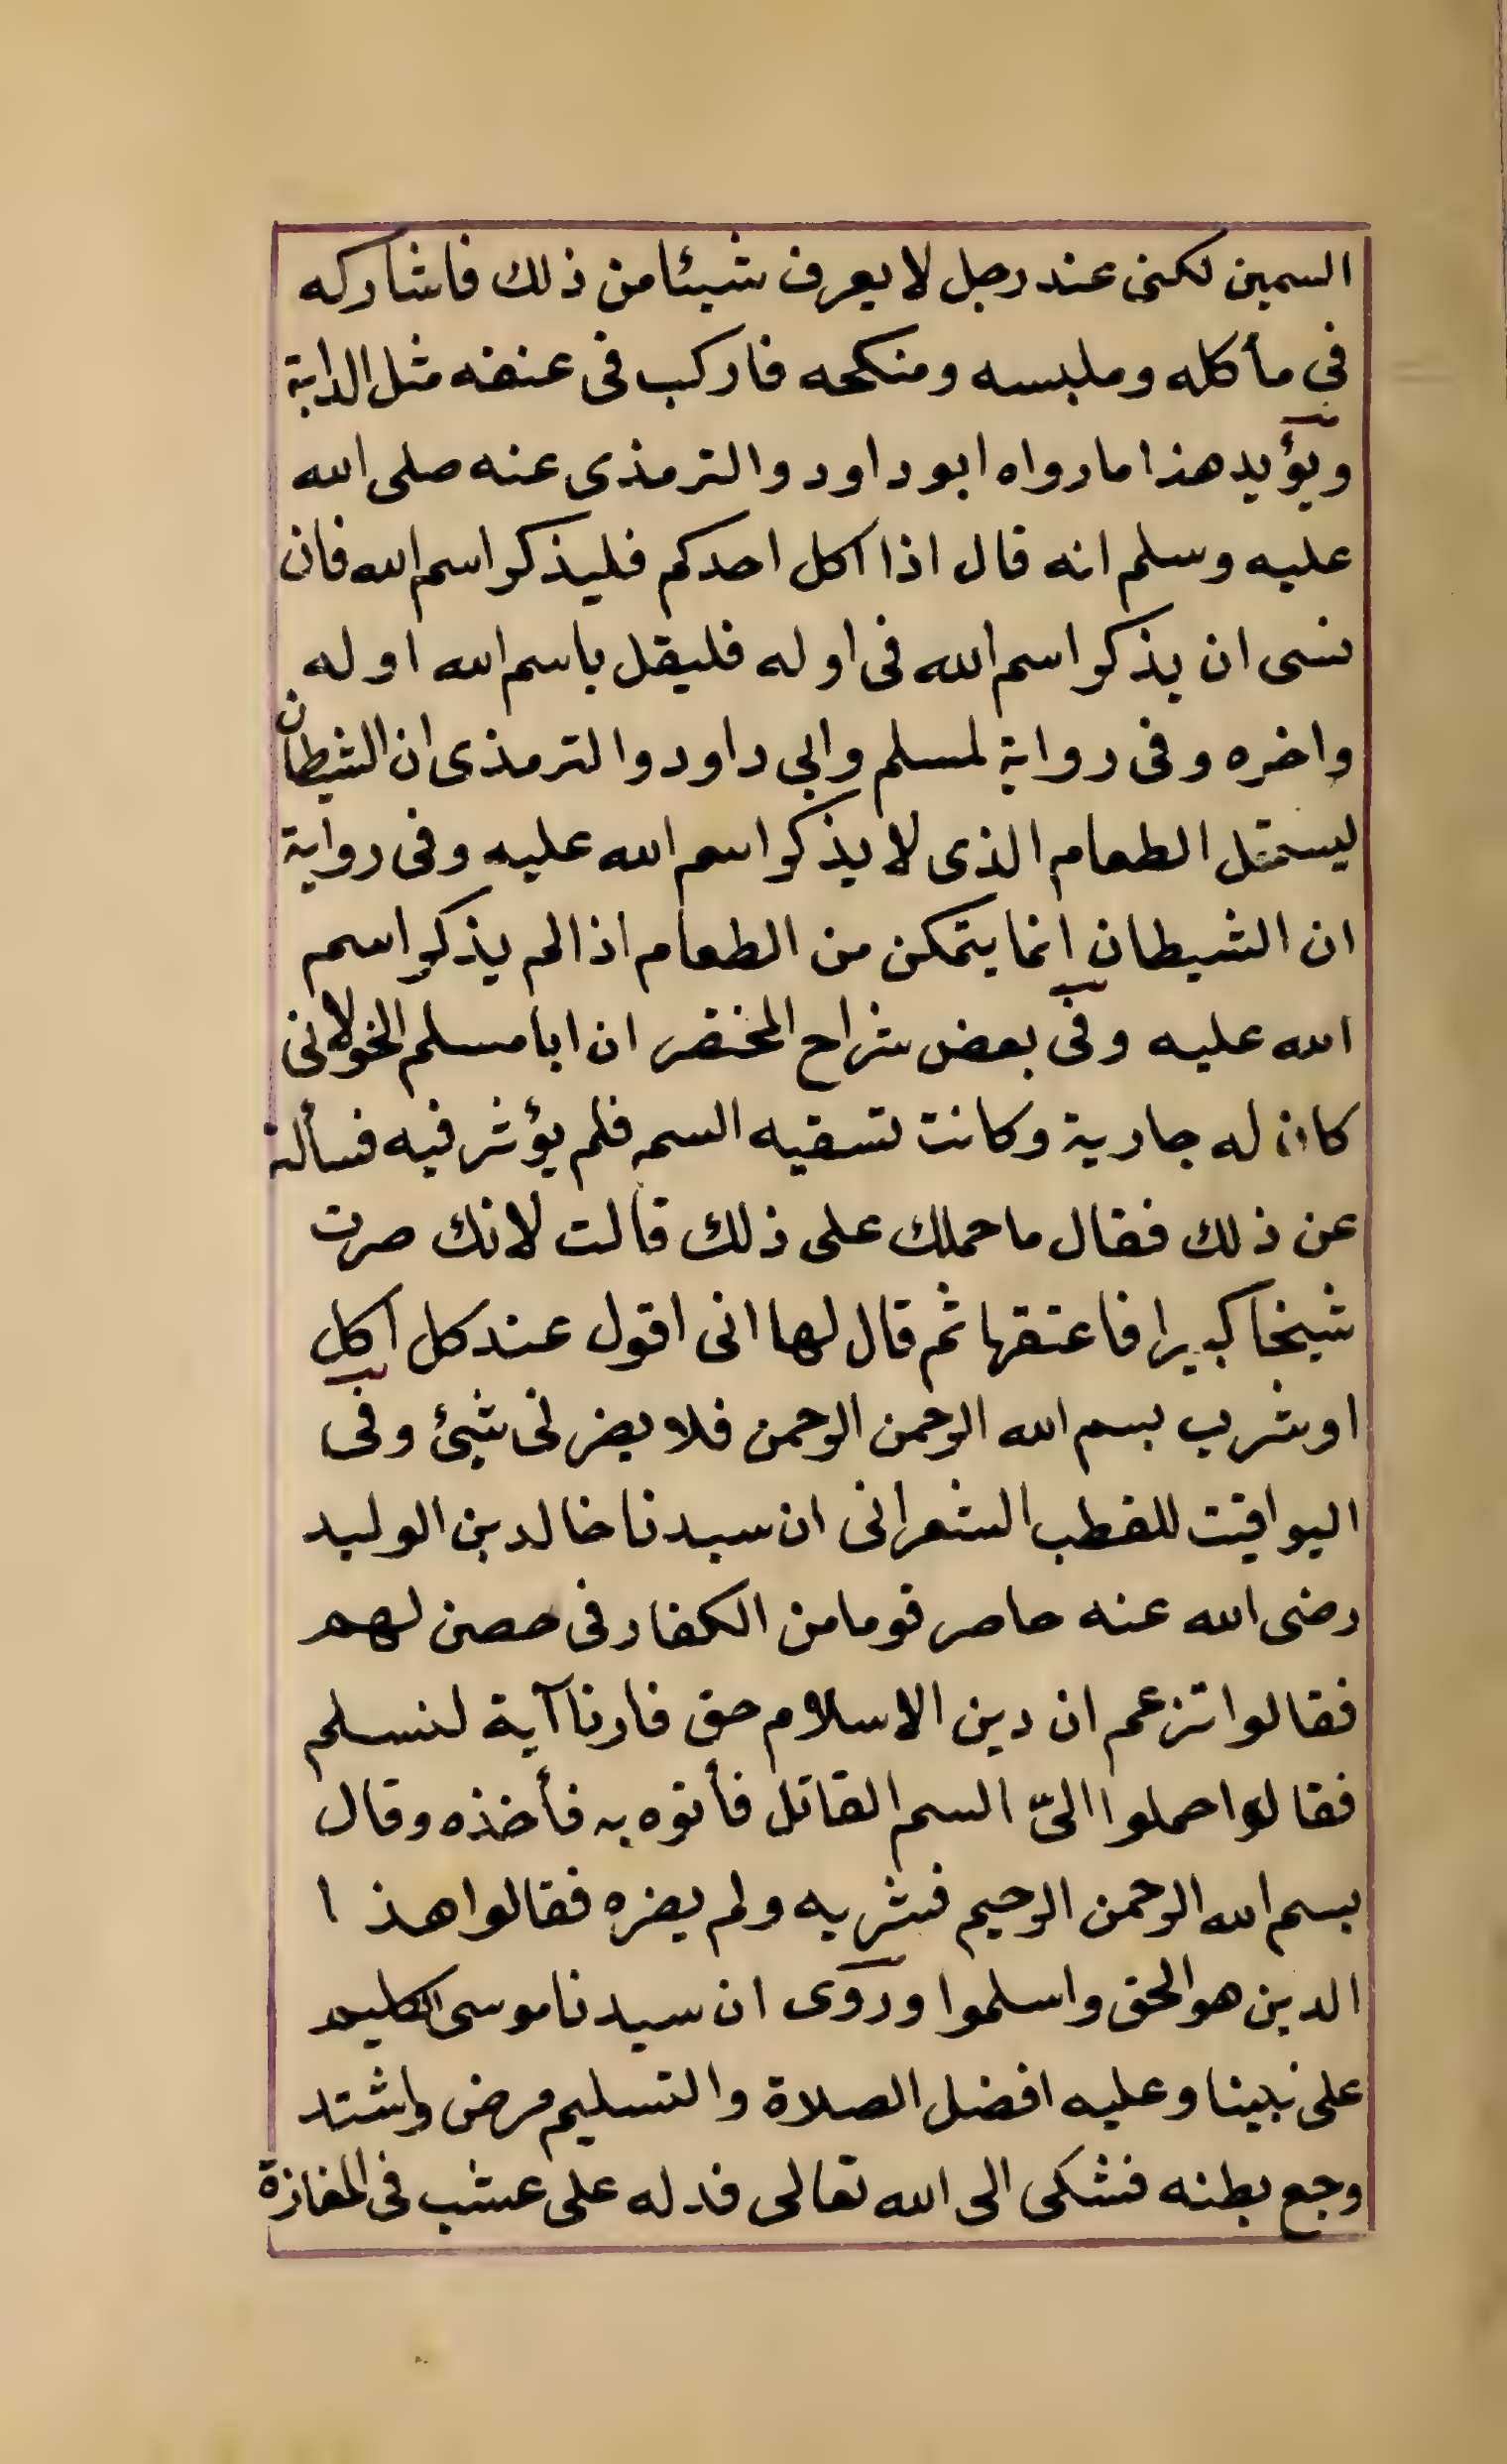 السمين لكنى عند رجل لا يعرف شيئا من ذلك فاشاركه
في مأكله وملبسه ومنكحه فاركب فى عنقه مثل الدابة
ويؤيد هذا ما رواه ابو داود والترمذى عنه صلى الله
عليه وسلم انه قال اذا اكل احدكم فليذكر اسم الله فان
نسى ان يذكر اسم الله فى اوله فليقل باسم الله اوله
واخره وفى رواية لمسلم وابي داود والترمذى ان الشيطان
ليستحل الطعام الذى لا يذكر اسم الله عليه وفى رواية
ان الشيطان انما يتمكن من الطعام اذا لم يذكر اسم
الله عليه وفى بعض شراح المختصر ان ابا مسلم الخولانى
كان له جارية وكانت تسقيه السم فلم يؤثر فيه فسألته
عن ذلك فقال ما حملك على ذلك قالت لانك صرت
شيخا كبيرا فاعتقها ثم قال لها انى اقول عند كل اكل
او شرب بسم الله الرحمن الرحمن فلا يضرنى شيئ وفى
اليواقيت للقطب الشعرانى ان سيدنا خالد بن الوليد
رضى الله عنه حاصر قوما من الكفار فى حصن لهم
فقالوا تزعم ان دين الاسلام حق فارنا آية لنسلم
فقال احملوا الىّ السم القاتل فأتوه به فأخذه وقال
بسم الله الرحمن الرحيم فشربه ولم يضره فقالوا هذا
الدين هو الحق واسلموا وروى ان سيدنا موسى الكليم
على نبينا وعليه افضل الصلاة والتسليم مرض واشتد
وجع بطنه فشكى الى الله تعالى فدله على عشب فى المفازة